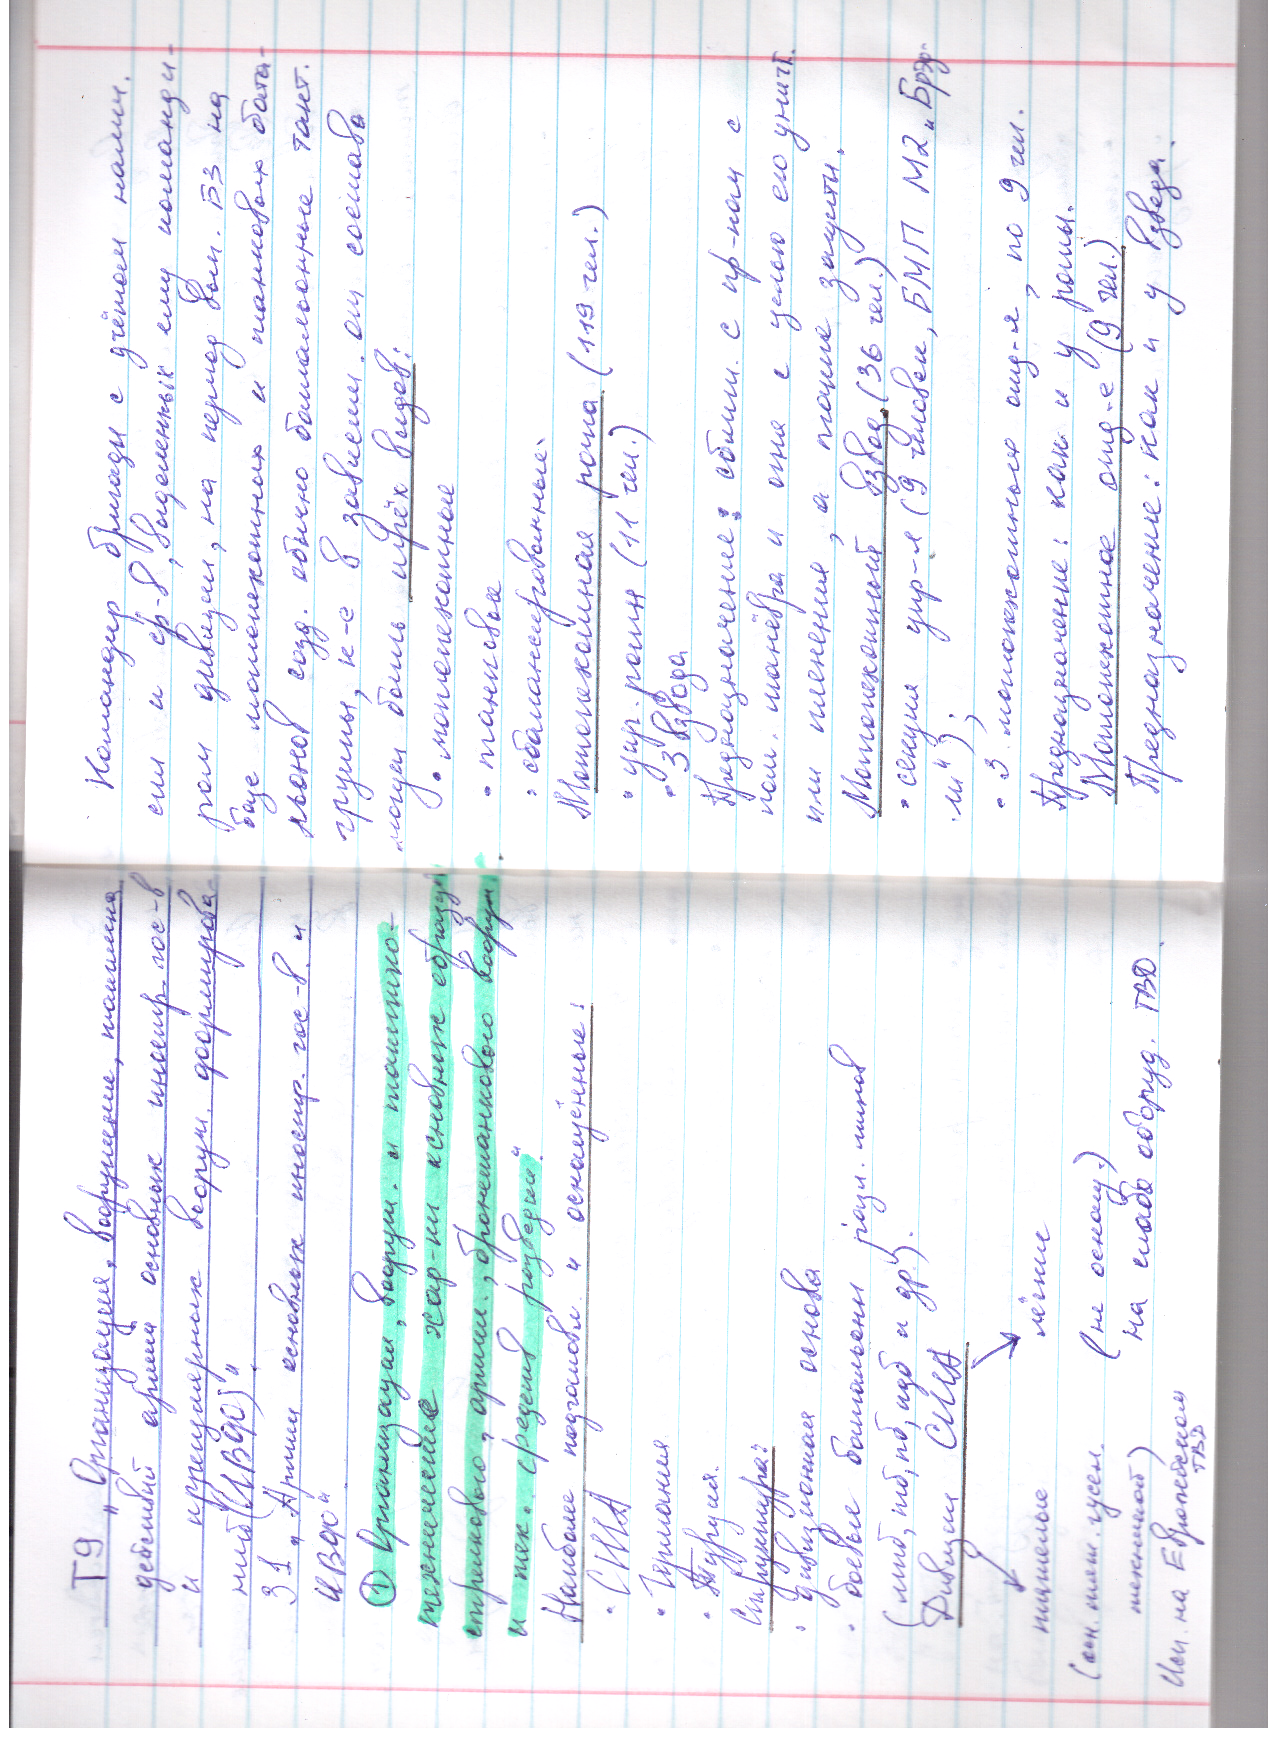 Т9 „Организация, вооружение, тактика
действий армий основных иностр. гос-в
и иррегулярных вооруж. формирова-
ний (ИВФ)"
З1 „Армии основных иностр. гос-в. и
ИВФ"
① Организация, вооруж. и тактико-
технические хар-ки основных образцов
стрелкового, артил., бронетанкового вооруж.
и тех. средств разведки".
Наиболее подготовл. и оснащённые:
• США
• Германия
• Турция.
Структура:
• дивизионная основа
• боевые батальоны разл. типов
(мпб, тб, пб, пдб и др.).
Дивизии США
тяжелые лёгкие
(осн. тяж. гусен. (не оснащ.)
техникой) на слабо оборуд. ТВД.
Исп. на Европейском
ТВД
Командир бригады с учётом налич.
сил и ср-в, выделенных ему команди-
ром дивизии, на период вып. БЗ на
базе мотопехотных и танковых бата-
льонов созд. обычно батальонные такт.
группы, к-е в зависим. от состава
могут быть трёх видов:
• мотопехотные
• танковые
• сбалансированные.
Мотопехотная рота (119 чел.)
• упр. роты (11 чел.)
• 3 взвода
Предназначение: сближ. с пр-ком с
пом. манёвра и огня с целью его уничт.
или пленения, а также защиты.
Мотопехотный взвод (36 чел.)
• секция упр-я (9 человек, БМП М2 „Брэд-
ли");
• 3 мотопехотных отд-я, по 9 чел.
Предназначение: как и у роты.
Мотопехотное отд-е (9 чел.)
Предназначение: как и у взвода.